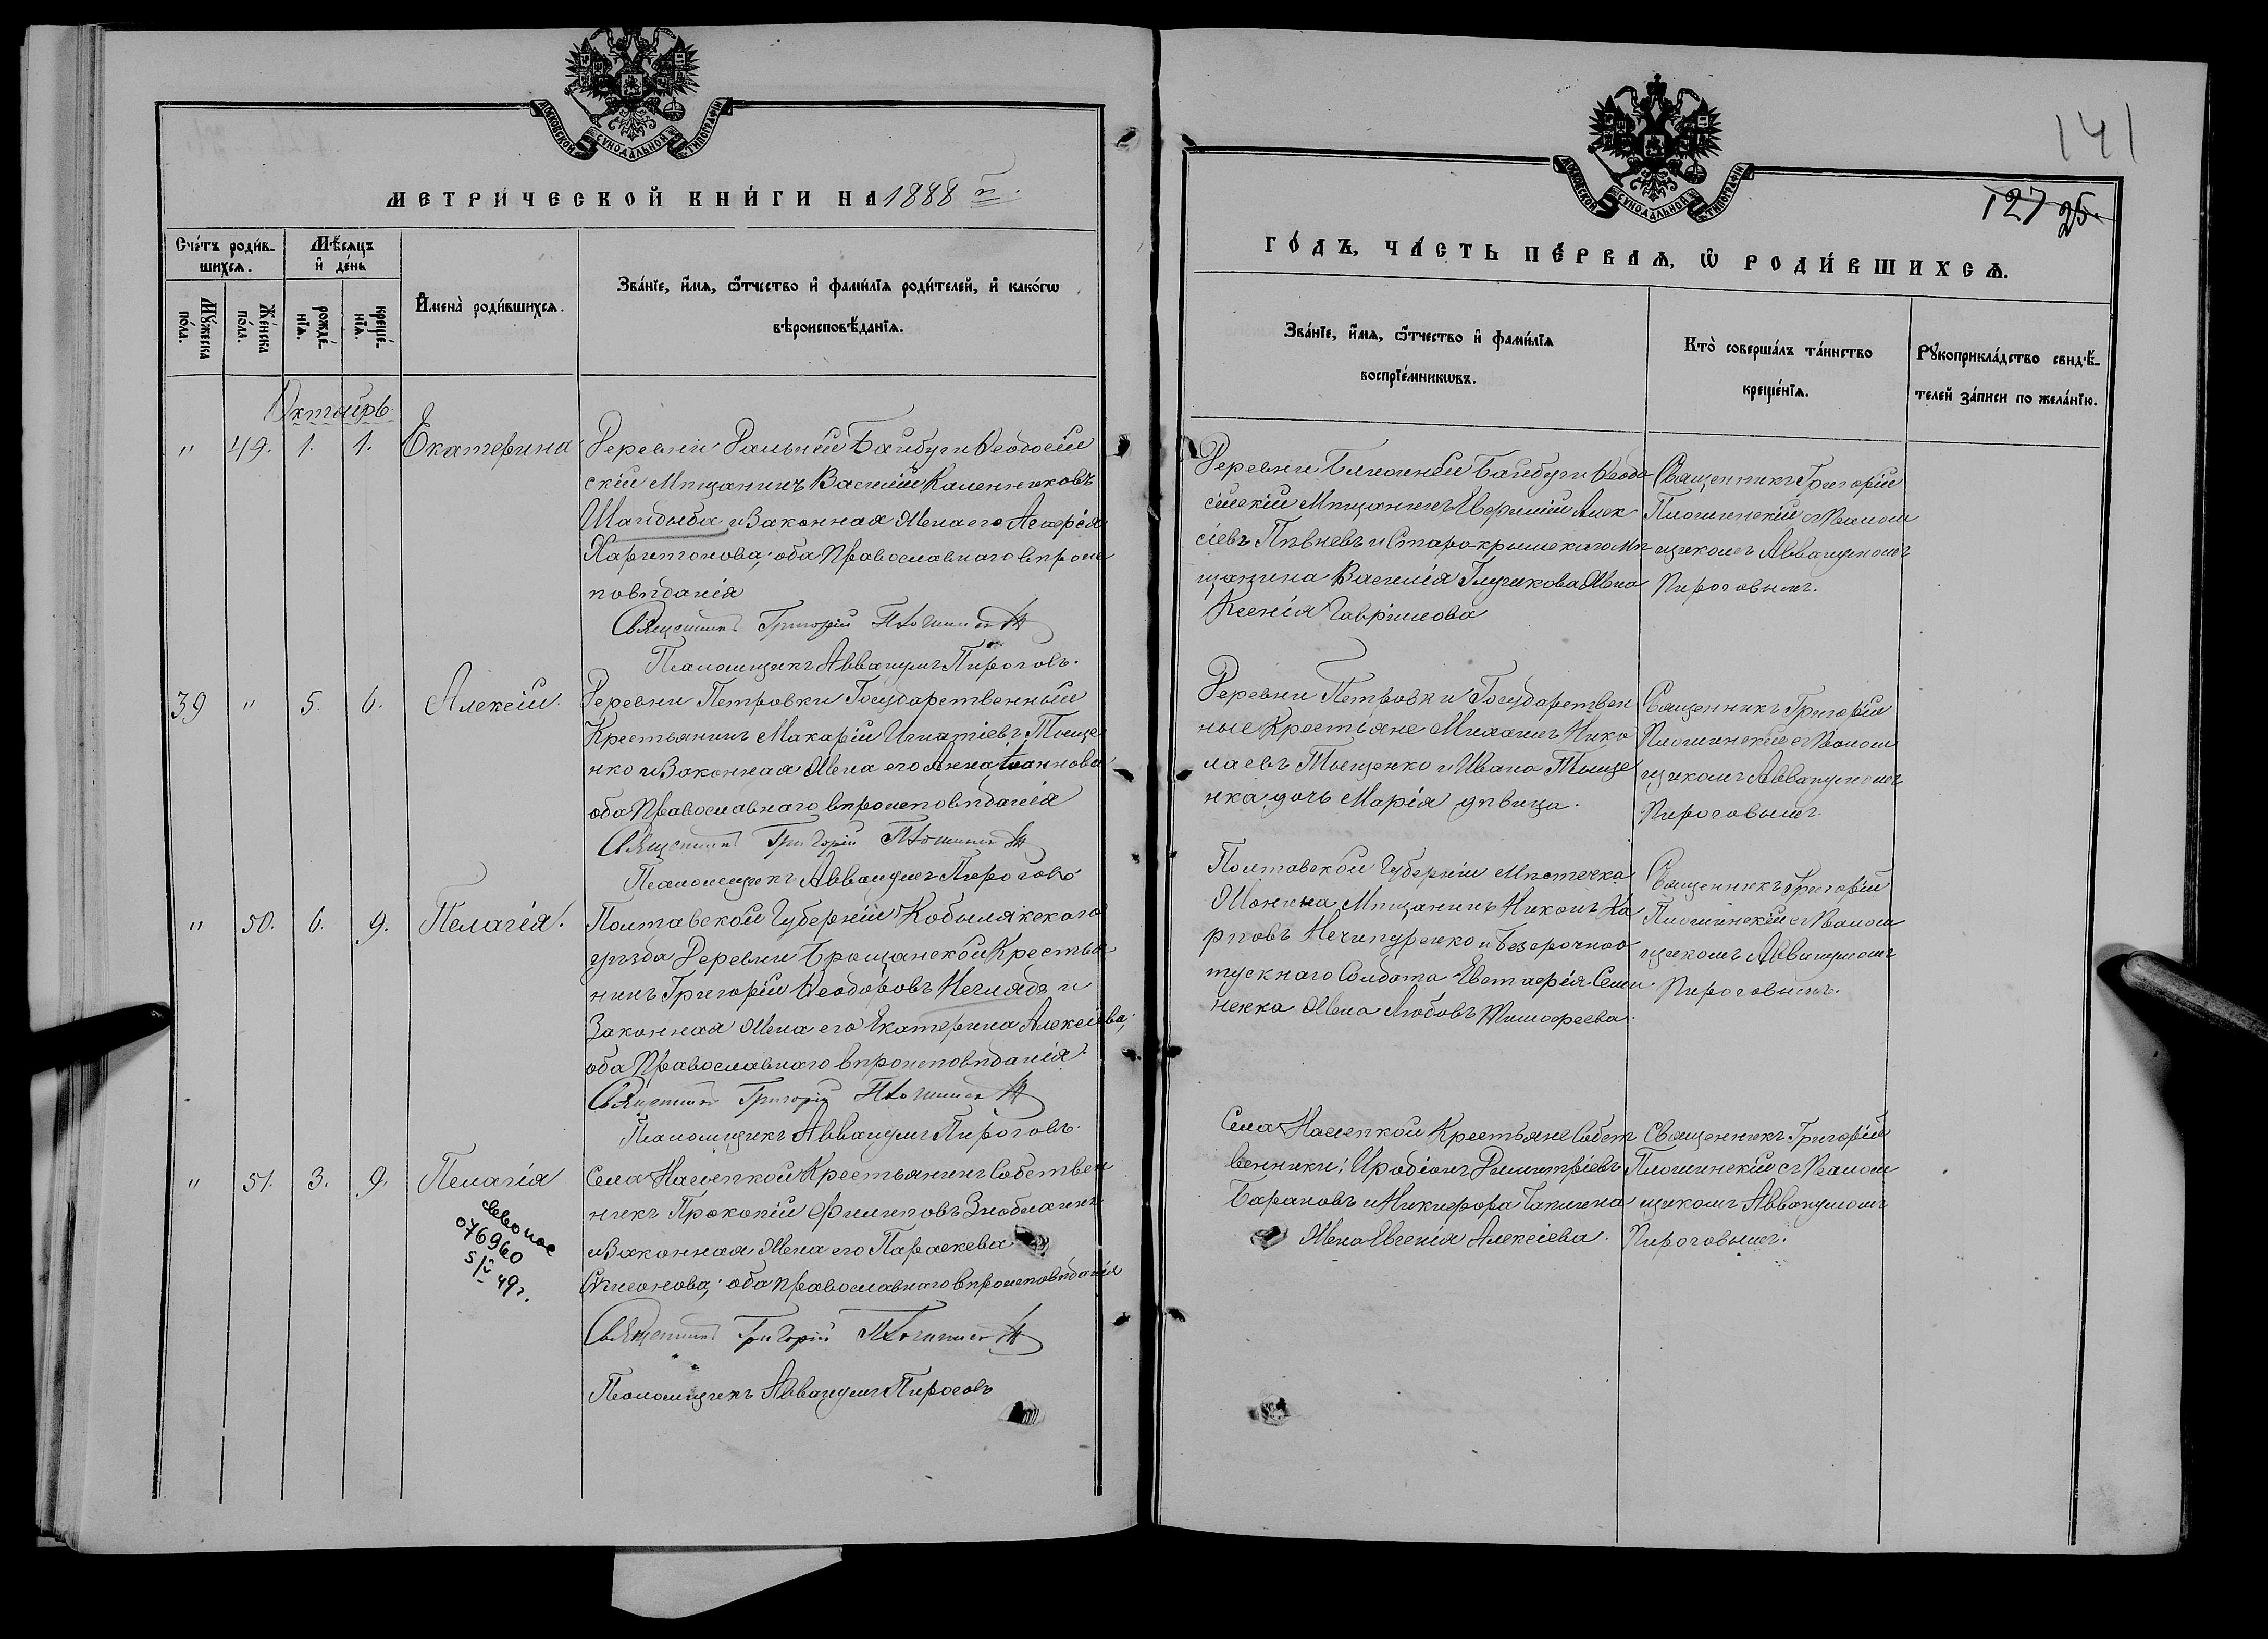 МОСКОВСКОЙ СѴНОДАЛЬНОЙ ТИПОГРАФІИ
МЕТРИ́ЧЕСКОЙ КНИ́ГИ НА 1888 г.
Сче́тъ роди́в-
шихсѧ.
Мѣ́сѧцъ
и҆ де́нь
Мꙋ́жеска
по́ла.
Же́нска
по́ла.
рожде́-
нїѧ.
креще́-
нїѧ.
И҆мена̀ роди́вшихсѧ.
Зва́нїе, и҆́мѧ, ѻ҆́тчество и҆ фами́лїѧ роди́телей, и҆ како́гѡ
вѣроисповѣ́данїѧ.
Октябрь.
" 49. 1. 1. Екатерина
Деревни Дальнiи Байбуги Ѳеодосiй
скiй Мѣщанинъ Василiй Калениковъ
Шандыба и Законная Жена его Агафiя
Харитонова; оба Православнаго вѣроис
повѣданiя
Священникъ Григорiй
Псаломщикъ Аввакумъ Пироговъ.
39 " 5. 6. Алексiй.
Деревни Петровки Государственный
Крестьянинъ Макарiй Игнатiевъ Тыще
нко и Законная Жена его Анна Iоаннова
оба Православнаго вѣроисповѣданiя
Священникъ Григорiй
Псаломщикъ Аввакумъ Пироговъ
" 50. 6. 9. Пелагiя.
Полтавской Губернiи Кобылякского
уѣзда Деревни Брощанской Крестья
нинъ Григорiй Ѳеодоровъ Негляд и
Законная Жена его Екатерина Алексiева;
оба Православнаго вѣроисповѣданiя.
Священникъ Григорiй
Псаломщикъ Аввакумъ Пироговъ.
" 51. 3. 9. Пелагiя
076960
49г.
Села Насыпкой Крестьянинъ Собствен
никъ Прокопiй Филиповъ
и Законная Жена его Параскева
Симеонова; оба православнаго вѣроисповѣданiя
Священникъ Григорiй
Псаломщикъ Аввакумъ Пироговъ
141
МОСКОВСКОЙ СѴНОДАЛЬНОЙ ТИПОГРАФІИ
127 25.
ГО́ДЪ, ЧА́СТЬ ПЕ́РВАѦ, Ѡ҆ РОДИ́ВШИХСѦ.
Зва́нїе, и҆́мѧ, ѻ҆́тчество и҆ фами́лїѧ
воспрїе́мникѡвъ.
Кто̀ соверша́лъ та́инство
креще́нїѧ.
Рꙋкоприкла́дство свидѣ́-
телей за́писи по жела́нїю.
Деревни Ближнiй Байбуги Ѳеодо
сiйскiй Мѣщанинъ Ефимiй Алек
сiевъ Пѣвневъ и Старокрымскаго Мѣ
щанина Василiя Глушкова Жена
Ксенiя Гаврiилова
Священникъ Григорiй
Плошинскiй съ Псалом
щикомъ Аввакумомъ
Пироговымъ.
Деревни Петровки Государствен
ные Крестьяне Михаилъ Нико
лаевъ Тыщенко и Ивана Тыще
нка дочь Марiя дѣвица.
Священникъ Григорiй
Плошинскiй съ Псалом
щикомъ Аввакумомъ
Пироговымъ.
Полтавской Губернiи Мѣстечка
Мѣщанинъ Никонъ Ка
рповъ Нечипуренко и Безсрочноо
тускнаго Солдата Евстафiя Семи
ненка Жена Любовь Тимофеева.
Священникъ Григорiй
Плошинскiй съ Псалом
щикомъ Аввакумомъ
Пироговымъ.
Села Насыпкой Крестьяне Собст
венники: Иродiонъ Димитрiевъ
Барановъ и Никифора Галкина
Жена Евгенiя Алексiева.
Священникъ Григорiй
Плошинскiй съ Псалом
щикомъ Аввакумомъ
Пироговымъ.